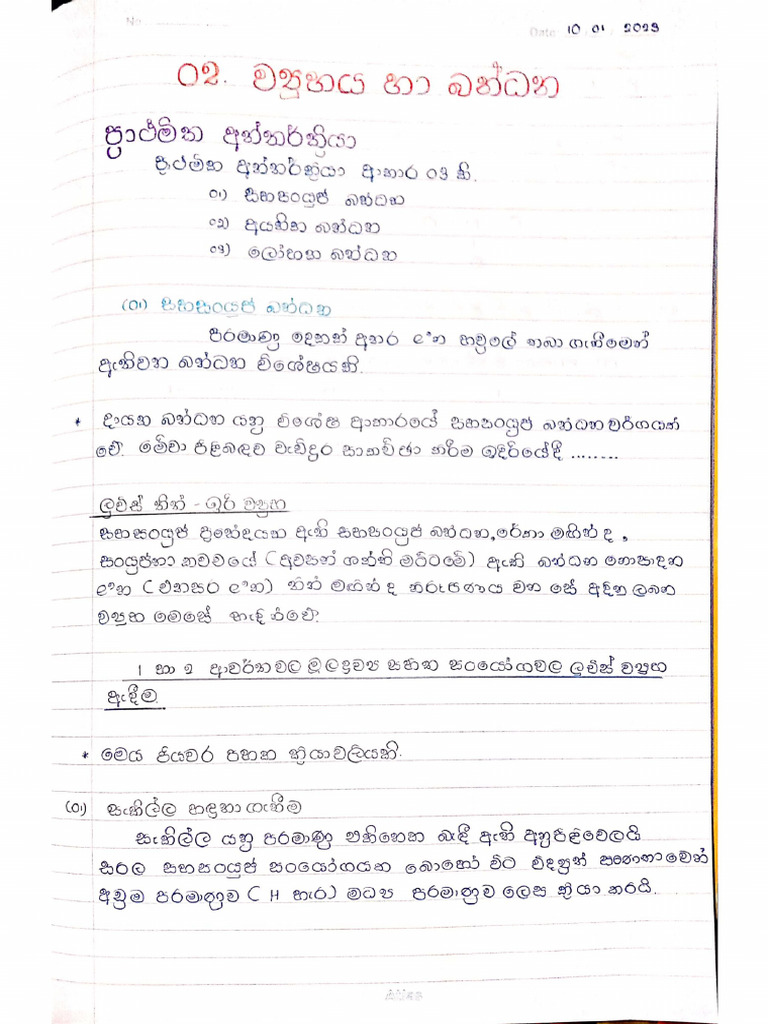 No
Date 10 01 2023
02. ව්‍යුහය හා බන්ධන
ප්‍රාථමික අන්තර්ක්‍රියා
ප්‍රාථමික අන්තර්ක්‍රියා ආකාර 03 කි.
01) සහසංයුජ බන්ධන
02) අයනික බන්ධන
03) ලෝහක බන්ධන
(01) සහසංයුජ බන්ධන
පරමාණු දෙකක් අතර e⁻න හවුලේ තබා ගැනීමෙන්
ඇතිවන බන්ධන විශේෂයකි.
* දායක බන්ධන යනු විශේෂ ආකාරයේ සහසංයුජ බන්ධන වර්ගයක්
වේ. මේවා පිළිබඳව වැඩිදුර සාකච්ඡා කරීම ඉදිරියේදී ........
ලුවිස් තිත් - ඉරි ව්‍යුහ
සහසංයුජ ප්‍රභේදයක ඇති සහසංයුජ බන්ධන, රේඛා මඟින් ද ,
සංයුජතා කවචයේ (අවසන් ශක්ති මට්ටමේ) ඇති බන්ධන නොසාදන
e⁻න (එකසර e⁻න) තිත් මඟින් ද නිරූපණය වන සේ අදිනු ලබන
ව්‍යුහ මෙසේ හැඳින්වේ.
1 හා 2 ආවර්තවල මූලද්‍රව්‍ය සහිත සංයෝගවල ලුවිස් ව්‍යුහ
ඇඳීම
* මෙය පියවර පහක ක්‍රියාවලියකි.
(01) සැකිල්ල හඳුනා ගැනීම
සැකිල්ල යනු පරමාණු එකිනෙක බැඳී ඇති අනුපිළිවෙලයි
සරල සහසංයුජ සංයෝගයක බොහෝ විට විද්‍යුත් සෘණතාවෙන්
අවුම පරමාණුව ( H හැර) මධ්‍ය පරමාණුව ලෙස ක්‍රියා කරයි.
Atlas